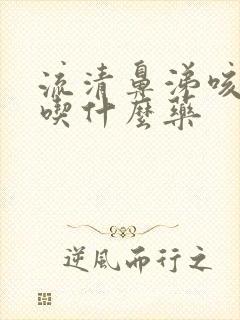 流清鼻涕咳
喫什麼藥
逆風而行之